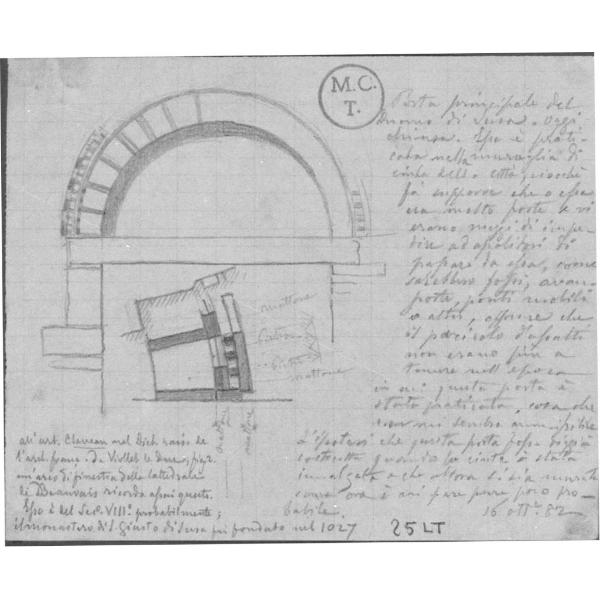 M.C.
T.
Porta principale del
duomo di Susa. Oggi
chiusa. Essa è prati-
cata nella muraglia di
cinta della città, giocché
fa supporre che o essa
era molto forte e vi
erano mezzi di impe-
dire ad assalitori di
passare da essa, come
sarebbero fossi, avam-
porte, ponti mobili
o altri, oppure che
il pericolo d'assalti
non erano più a
temere nell'epoca
in cui questa porta è
stata praticata, cosa che
non mi sembra
che questa porta fosse
quando la cinta è stata
innalzata e che allora si sia murata
come ora è mi pare pure poco pro-
babile.
16 ott.e 82
mattone
pietra
pietra
mattone
mattone
mattone
all'art. Claveau nel Dich. rais. de
l'arch. franc. di Viollet le Duc,
un'arco di finestra della cattedrale
di Beauvais ricorda assai questo.
Esso è del Sec. VIII.° probabilmente;
il monastero di S. Giusto di Susa fu fondato nel 1027
25 LT